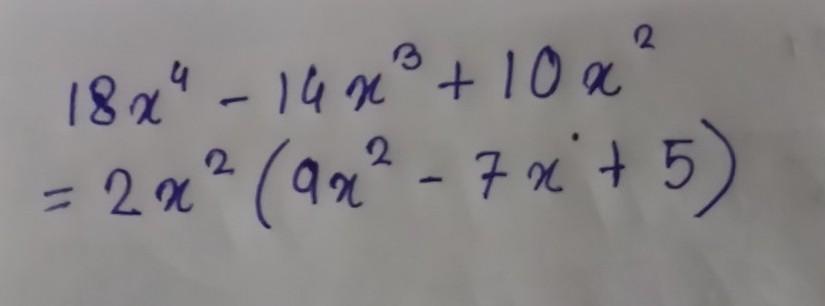 18x⁴ - 14x³ + 10x²
= 2x² (9x² - 7x + 5)